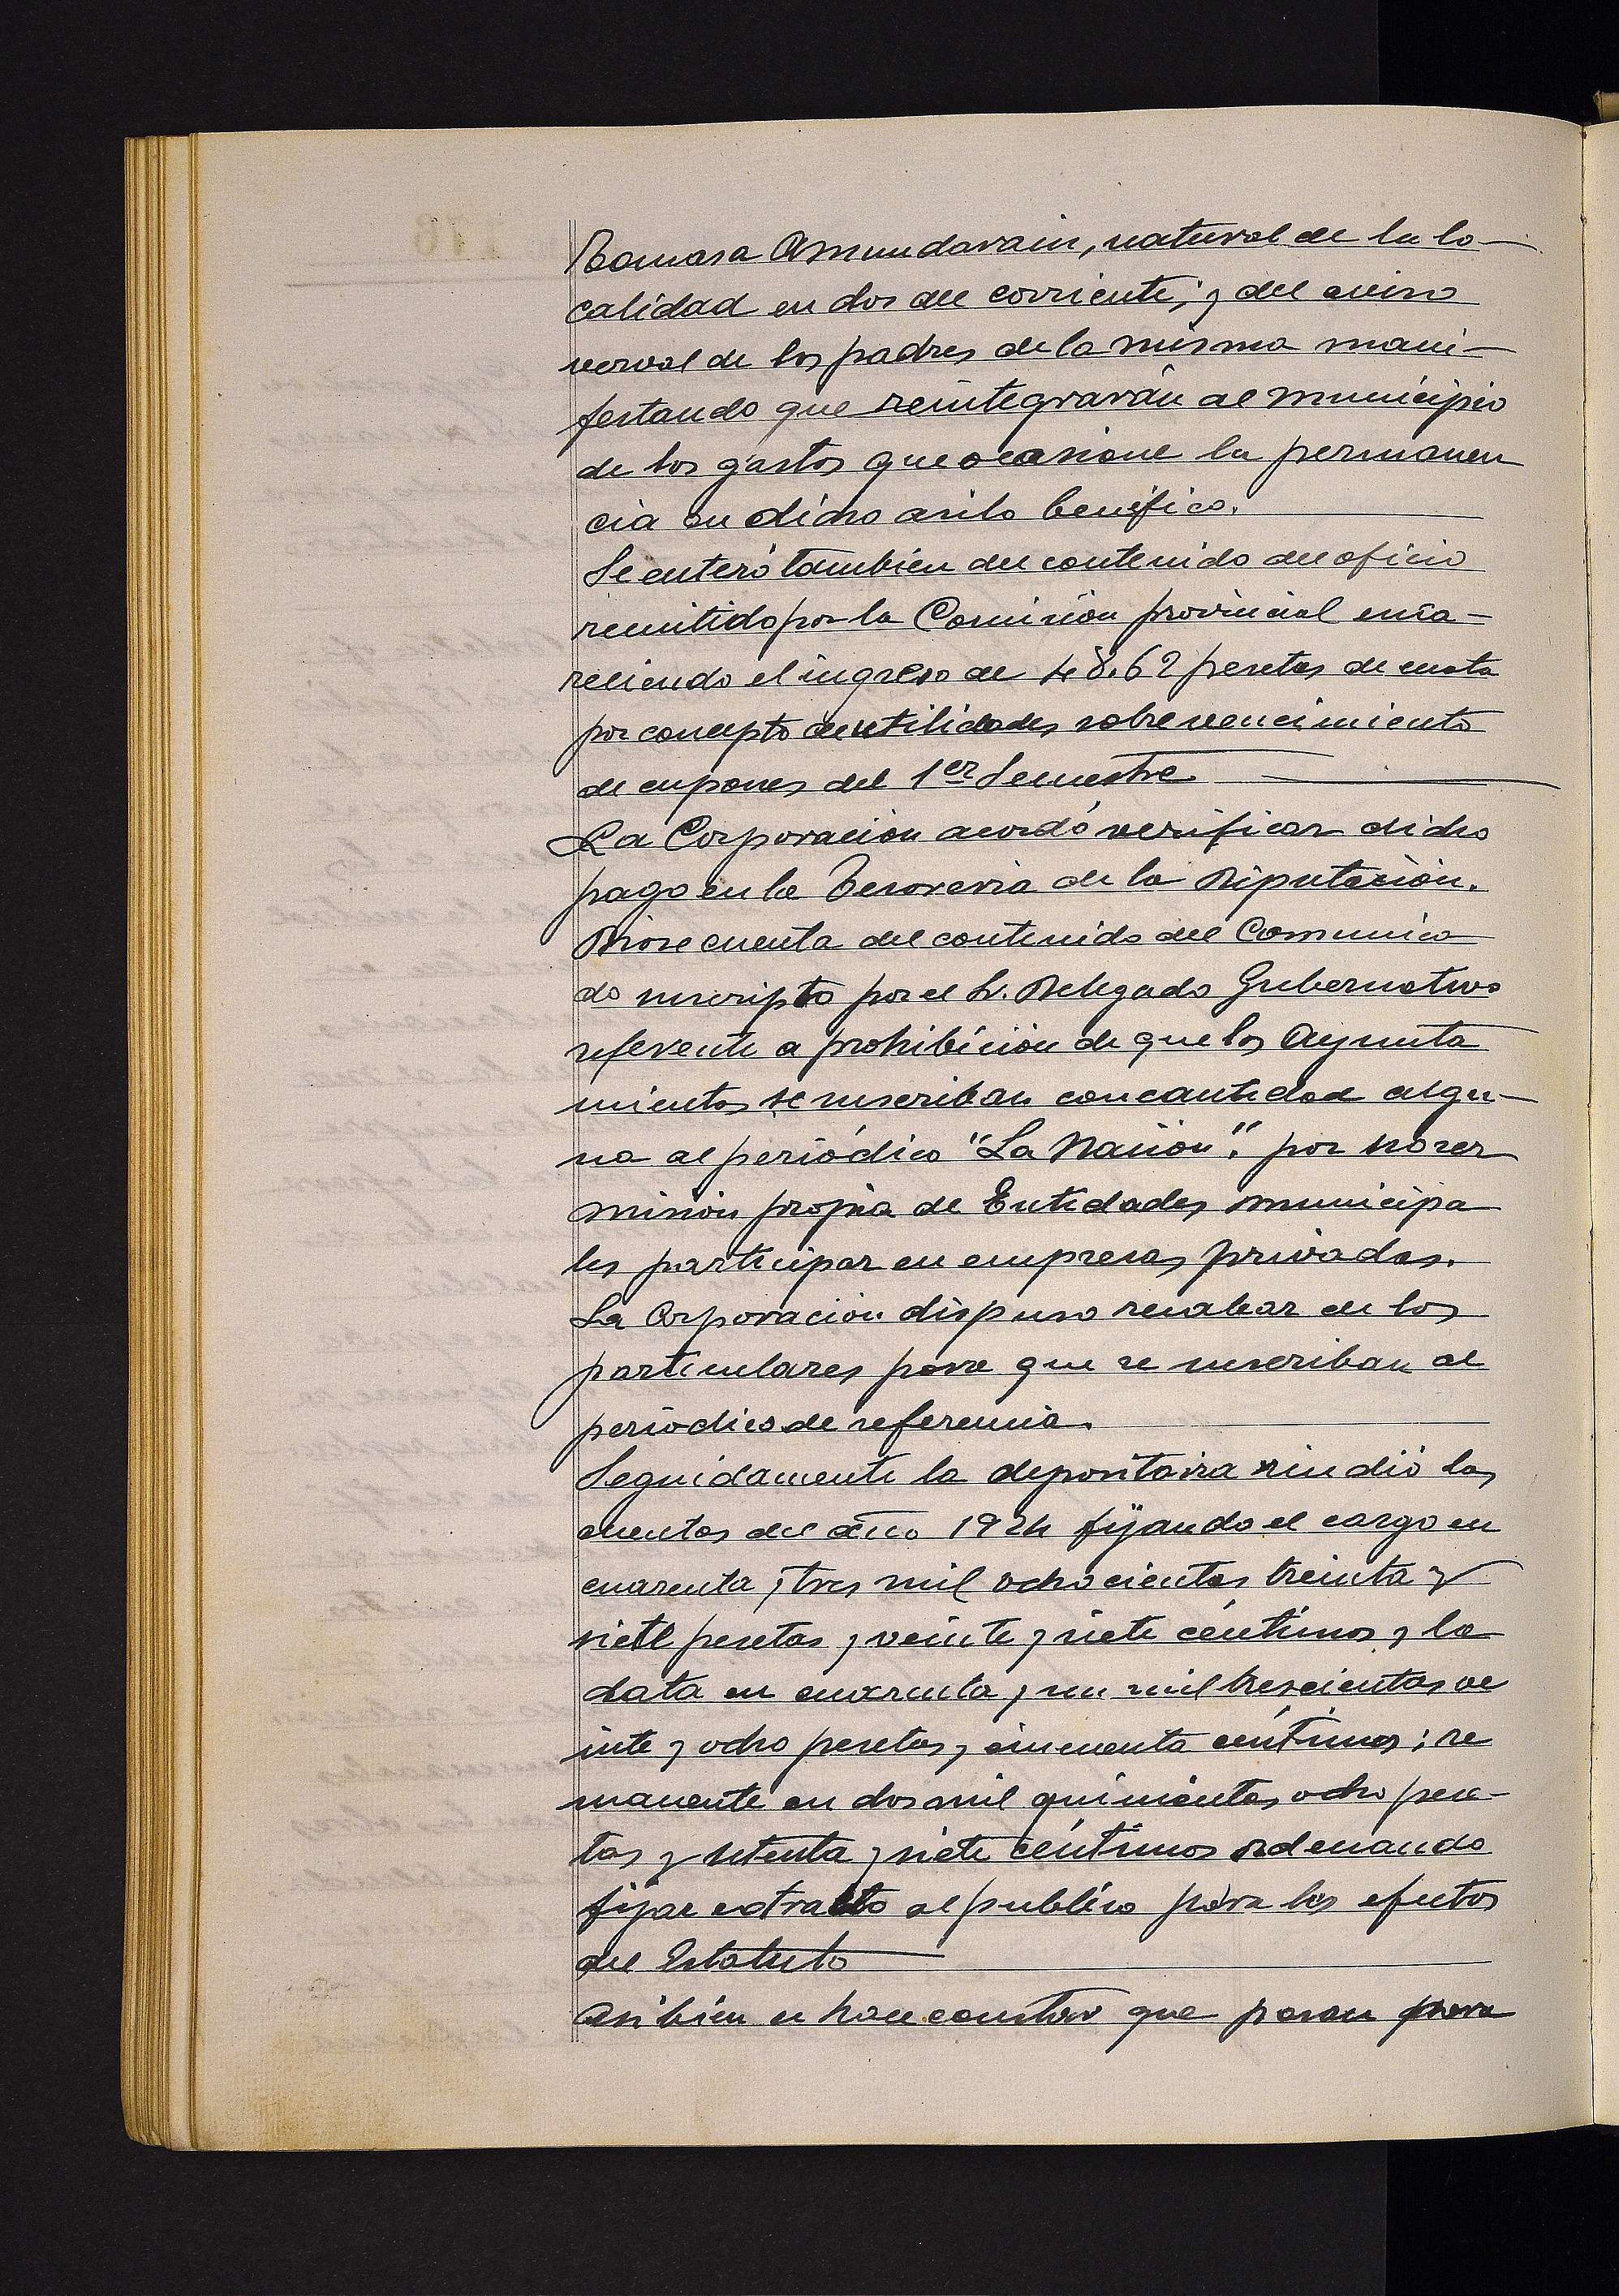 Tomasa Amundarain, natural de la lo-
calidad en dos del corriente; y del aviso
verval de los padres de la misma mani-
festando que reintegrarán al municipio
de los gastos que ocasione la permanen
cia en dicho asilo benéfico.
Se enteró tambien del contenido del oficio
remitido por la Comisión provincial enca-
reciendo el ingreso de 48.62 pesetas de cuota
por concepto de utilidades sobre vencimiento
de cupones del 1er Semestre
La Corporación acordó verificar dicho
pago en la Tesoreria de la Diputación.
Diose cuenta del contenido del Comunica
do suscripto por el Sr. Delegado Gubernativo
referente a prohibición de que los Ayunta
mientos se suscriban con cantidad algu-
na al periódico "La Nación". por no ser
misión propia de Entidades municipa
les participar en empresas privadas.
La Corporación dispuso recabar de los
particulares para que se suscriban al
periodico de referencia.
Seguidamente la depositaria rindió las
cuentas del año 1924 fijando el cargo en
cuarenta y tres mil ochocientas treinta y
siete pesetas y veinte y siete céntimos y la
data en cuarenta y un mil trescientas ve
inte y ocho pesetas y cincuenta céntimos; re
manente en dos mil quinientas ocho pese-
tas y setenta y siete céntimos ordenando
fijar extracto al publico para los efectos
del Estatuto
Asi bien se hace constar que pasan para